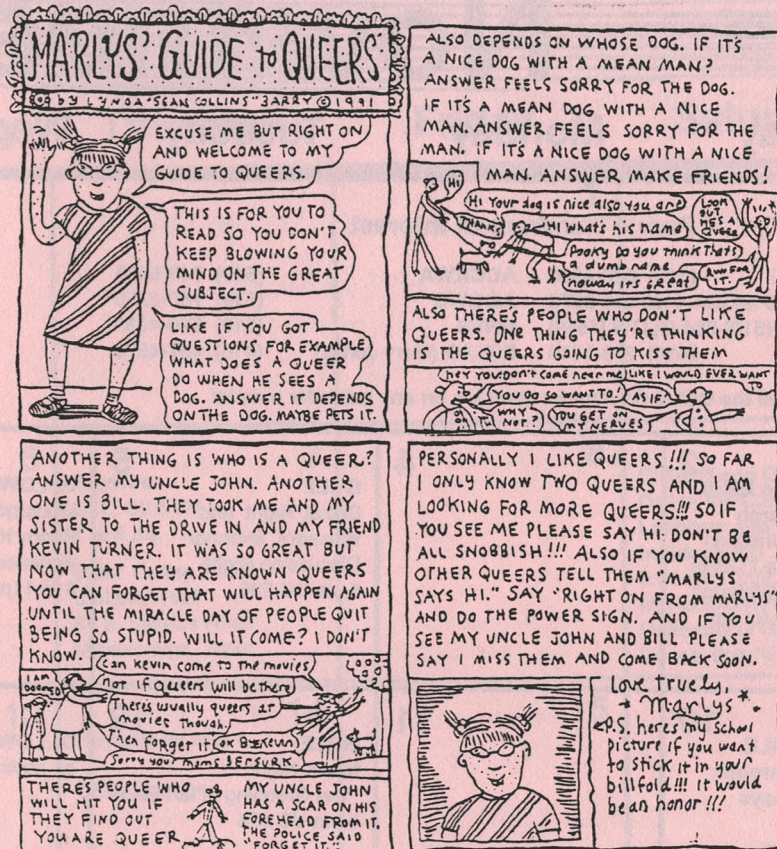 MARLYS' GUIDE to QUEERS
by LYNDA "SEAN COLLINS" BARRY © 1991
EXCUSE ME BUT RIGHT ON
AND WELCOME TO MY
GUIDE TO QUEERS.
THIS IS FOR YOU TO
READ SO YOU DON'T
KEEP BLOWING YOUR
MIND ON THE GREAT
SUBJECT.
LIKE IF YOU GOT
QUESTIONS FOR EXAMPLE
WHAT DOES A QUEER
DO WHEN HE SEES A
DOG. ANSWER IT DEPENDS
ON THE DOG. MAYBE PETS IT.
ALSO DEPENDS ON WHOSE DOG. IF IT'S
A NICE DOG WITH A MEAN MAN?
ANSWER FEELS SORRY FOR THE DOG.
IF IT'S A MEAN DOG WITH A NICE
MAN. ANSWER FEELS SORRY FOR THE
MAN. IF IT'S A NICE DOG WITH A NICE
MAN. ANSWER MAKE FRIENDS!
Hi
Hi Your dog is nice also you are
THANKS
Hi what's his name
Pooky Do you think that's
a dumb name
noway its GREat
LOOK
OUT
HE'S A
QUEER
RUN FOR
IT.
ALSO THERE'S PEOPLE WHO DON'T LIKE
QUEERS. ONE THING THEY'RE THINKING
IS THE QUEERS GOING TO KISS THEM
hey you don't come near me
LIKE I WOULD EVER WANT
TO
YOU DO SO WANT TO!
AS IF!
WHY
NOT?
YOU GET ON
MY NERVES!
ANOTHER THING IS WHO IS A QUEER?
ANSWER MY UNCLE JOHN. ANOTHER
ONE IS BILL. THEY TOOK ME AND MY
SISTER TO THE DRIVE IN AND MY FRIEND
KEVIN TURNER. IT WAS SO GREAT BUT
NOW THAT THEY ARE KNOWN QUEERS
YOU CAN FORGET THAT WILL HAPPEN AGAIN
UNTIL THE MIRACLE DAY OF PEOPLE QUIT
BEING SO STUPID. WILL IT COME? I DON'T
KNOW.
I AM
DOOMED
Can Kevin come to the movies
not if Queers will be there
There's usually queers at
movies though.
Then forget it
OK BYE KEVIN
Sorry your moms BERSURK.
THERE'S PEOPLE WHO
WILL HIT YOU IF
THEY FIND OUT
YOU ARE QUEER
MY UNCLE JOHN
HAS A SCAR ON HIS
FOREHEAD FROM IT.
THE POLICE SAID
"FORGET IT."
PERSONALLY I LIKE QUEERS!!! SO FAR
I ONLY KNOW TWO QUEERS AND I AM
LOOKING FOR MORE QUEERS!!! SO IF
YOU SEE ME PLEASE SAY HI. DON'T BE
ALL SNOBBISH!!! ALSO IF YOU KNOW
OTHER QUEERS TELL THEM "MARLYS
SAYS HI." SAY "RIGHT ON FROM MARLYS"
AND DO THE POWER SIGN. AND IF YOU
SEE MY UNCLE JOHN AND BILL PLEASE
SAY I MISS THEM AND COME BACK SOON.
Love truely,
Marlys
P.S. heres my school
picture if you want
to stick it in your
billfold!!! It would
be an honor!!!